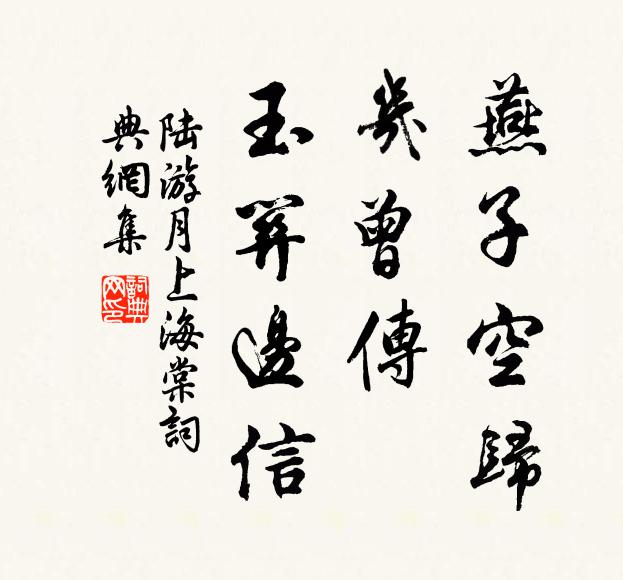 燕子空歸
幾曾傳
玉關邊信
陸游月上海棠詞
典網集
詞典网印